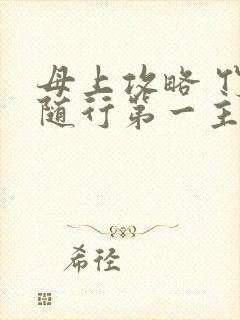 母上攻略
随行第一主
希径